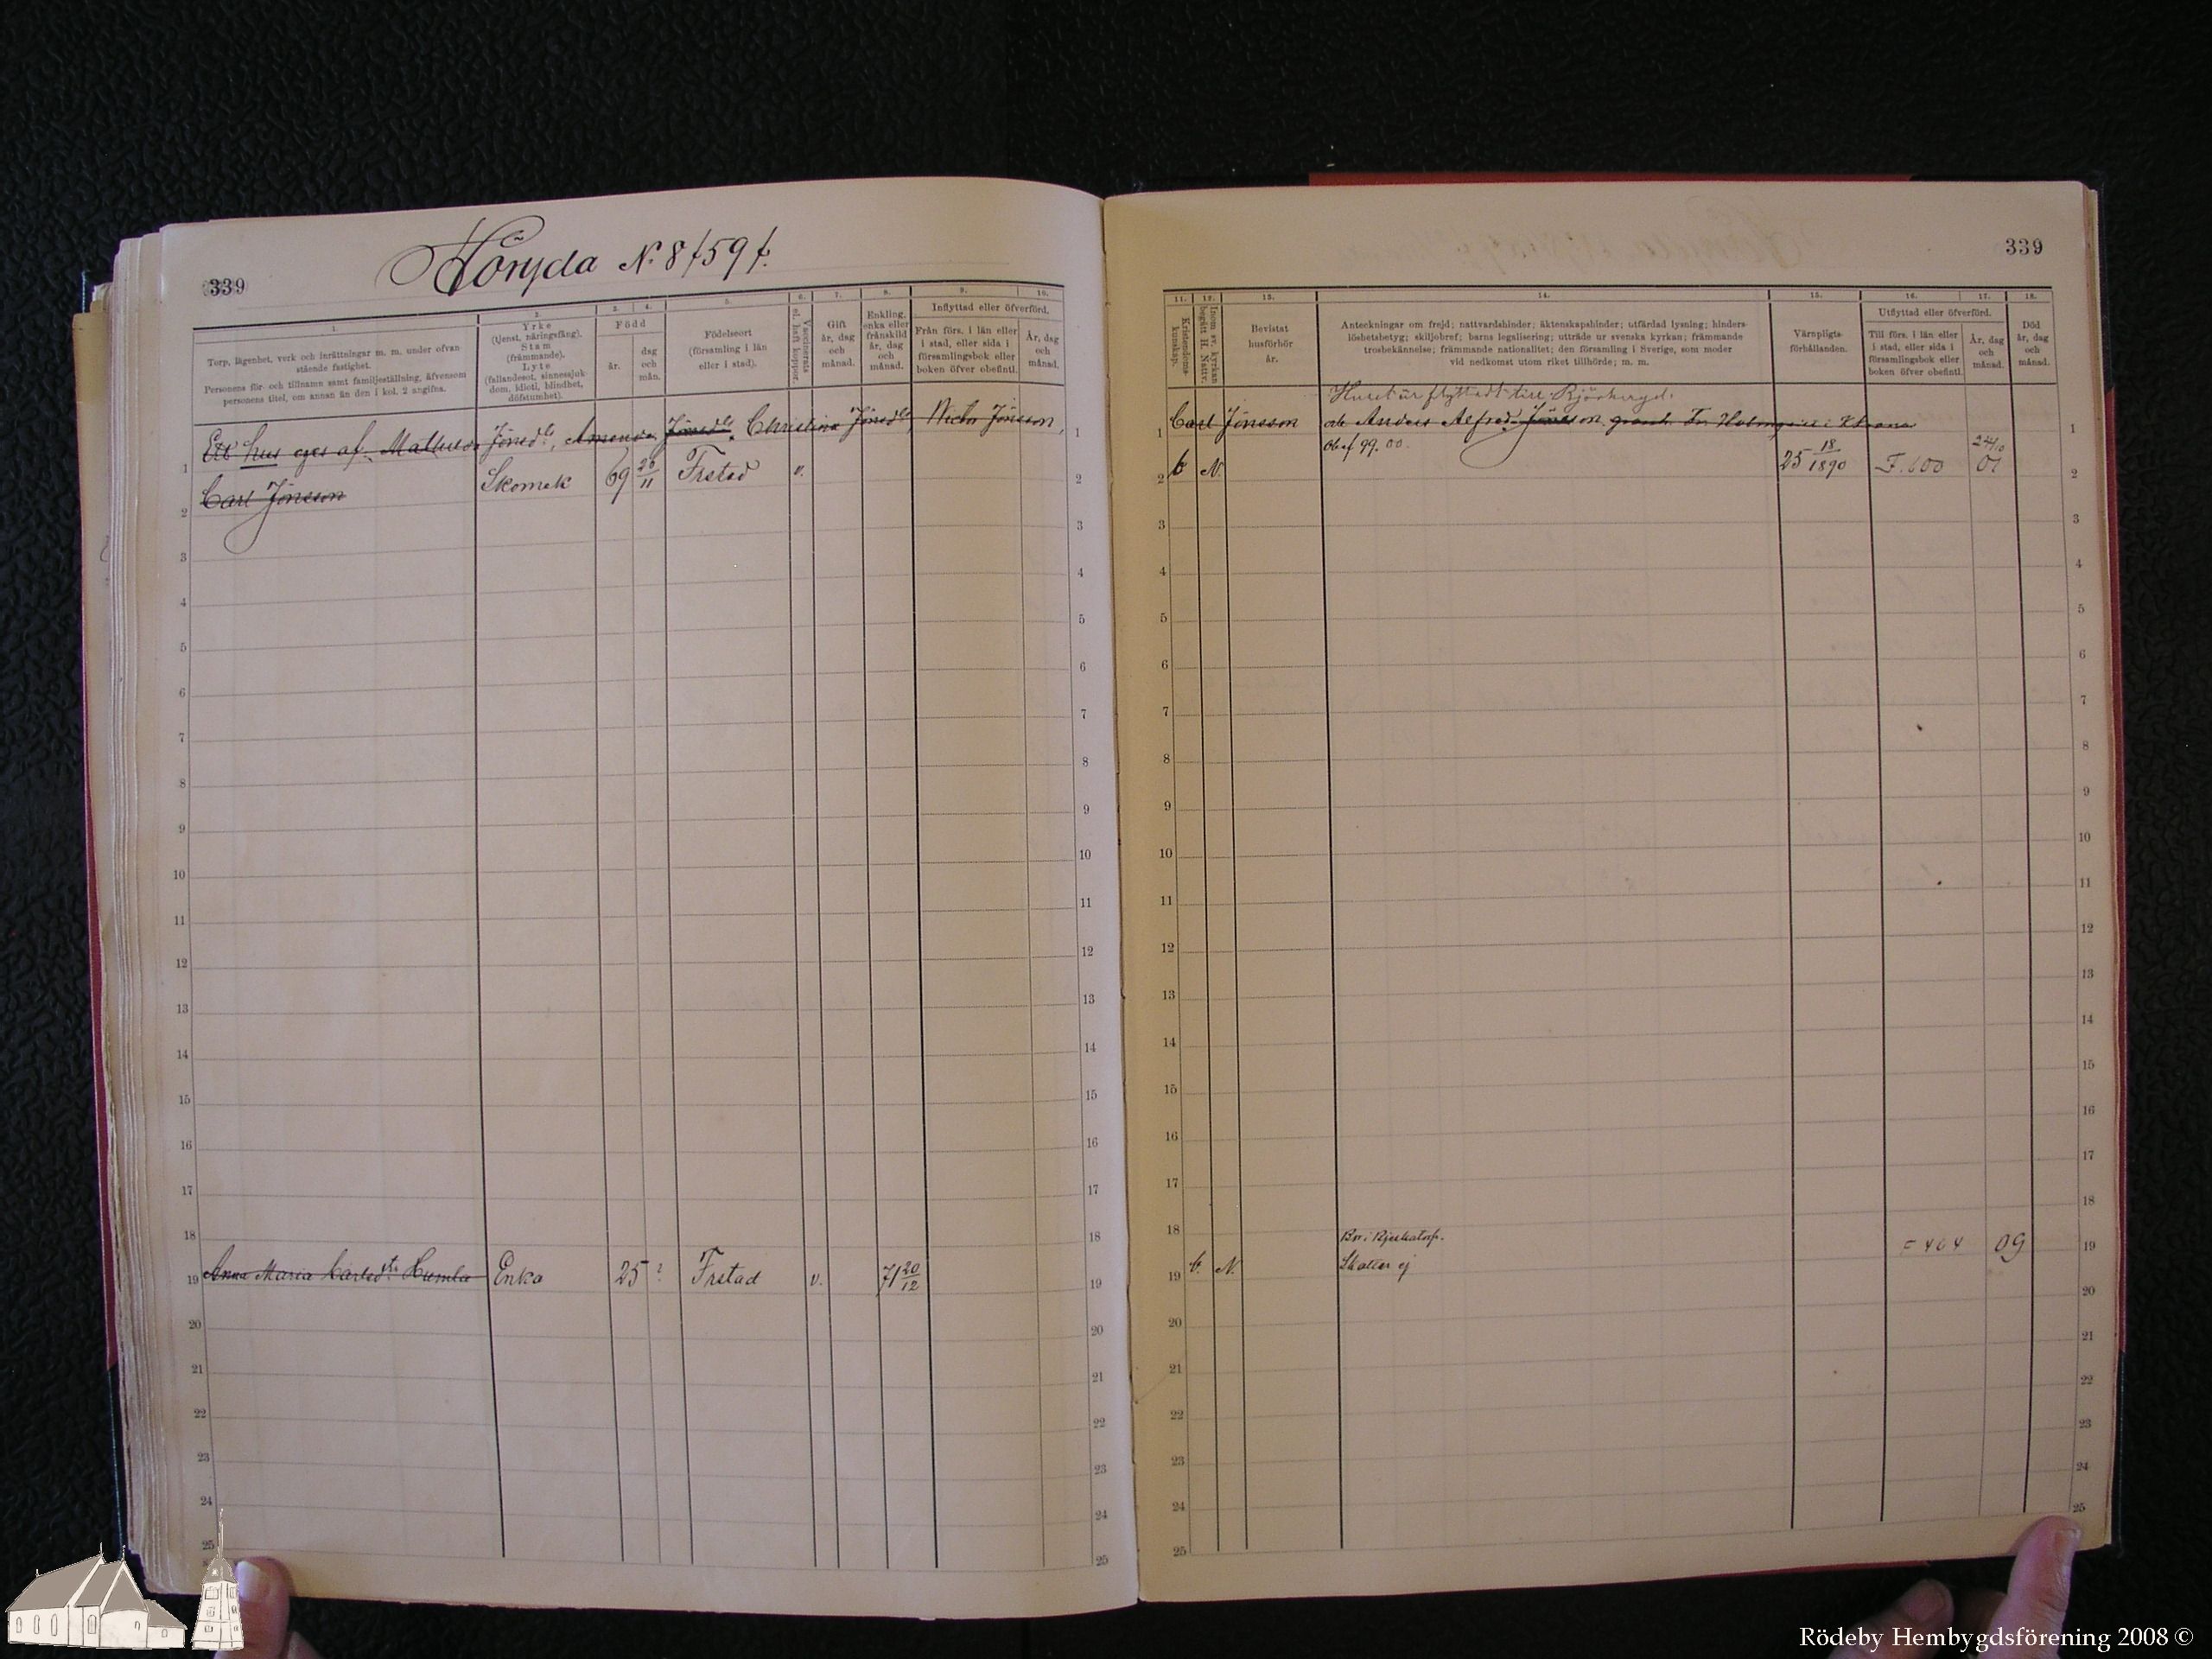 339
Höryda N° 8 f 59 f.
1.
Torp, lägenhet, verk och inrättningar m. m. under ofvan
stående fastighet.
Personens för- och tillnamn samt familjeställning, äfvensom
personens titel, om annan än den i kol. 2 angifna.
2.
Yrke
(tjenst, näringsfång).
Stam
(främmande).
Lyte
(fallandesot, sinnessjuk-
dom, idioti, blindhet,
döfstumhet).
3. 4.
Född
år.
dag
och
mån.
5.
Födelseort
(församling i län
eller i stad).
6.
Vaccinerats
el. haft koppor.
7.
Gift
år, dag
och
månad.
8.
Enkling,
enka eller
frånskild
år, dag
och
månad.
9. 10.
Inflyttad eller öfverförd.
Från förs. i län eller
i stad, eller sida i
församlingsbok eller
boken öfver obefintl.
År, dag
och
månad.
1 Ett hus eges af Mathilda Jönsdr, Amanda Jönsdr, Christina Jönsdr, Victor Jönsson, 1
2 Carl Jönsson Skomak 69 20/11 Frstad v. 2
3 3
4 4
5 5
6 6
7 7
8 8
9 9
10 10
11 11
12 12
13 13
14 14
15 15
16 16
17 17
18 18
19 Anna Maria Carlsdtr Humla Enka 25 ? Frstad v. 71 20/12 19
20 20
21 21
22 22
23 23
24 24
25 25
339
11.
Kristendoms-
kunskap.
12.
Inom sv. kyrkan
begått H. Nattv.
13.
Bevistat
husförhör
år.
14.
Anteckningar om frejd; nattvardshinder; äktenskapshinder; utfärdad lysning; hinders-
löshetsbetyg; skiljobref; barns legalisering; utträde ur svenska kyrkan; främmande
trosbekännelse; främmande nationalitet; den församling i Sverige, som moder
vid nedkomst utom riket tillhörde; m. m.
15.
Värnpligts-
förhållanden.
16. 17.
Utflyttad eller öfverförd.
Till förs. i län eller
i stad, eller sida i
församlingsbok eller
boken öfver obefintl.
År, dag
och
månad.
18.
Död
år, dag
och
månad.
Huset är flyttadt till
1 Carl Jönsson och Anders Alfred Jönsson 1
Obef 99. 00.
2 b N. 25 18/1890 F. 600 24/10 01 2
3 3
4 4
5 5
6 6
7 7
8 8
9 9
10 10
11 11
12 12
13 13
14 14
15 15
16 16
17 17
18 18
Bor i
19 b. N. Skattar ej = 464 09 19
20 20
21 21
22 22
23 23
24 24
25 25
Rödeby Hembygdsförening 2008 ©